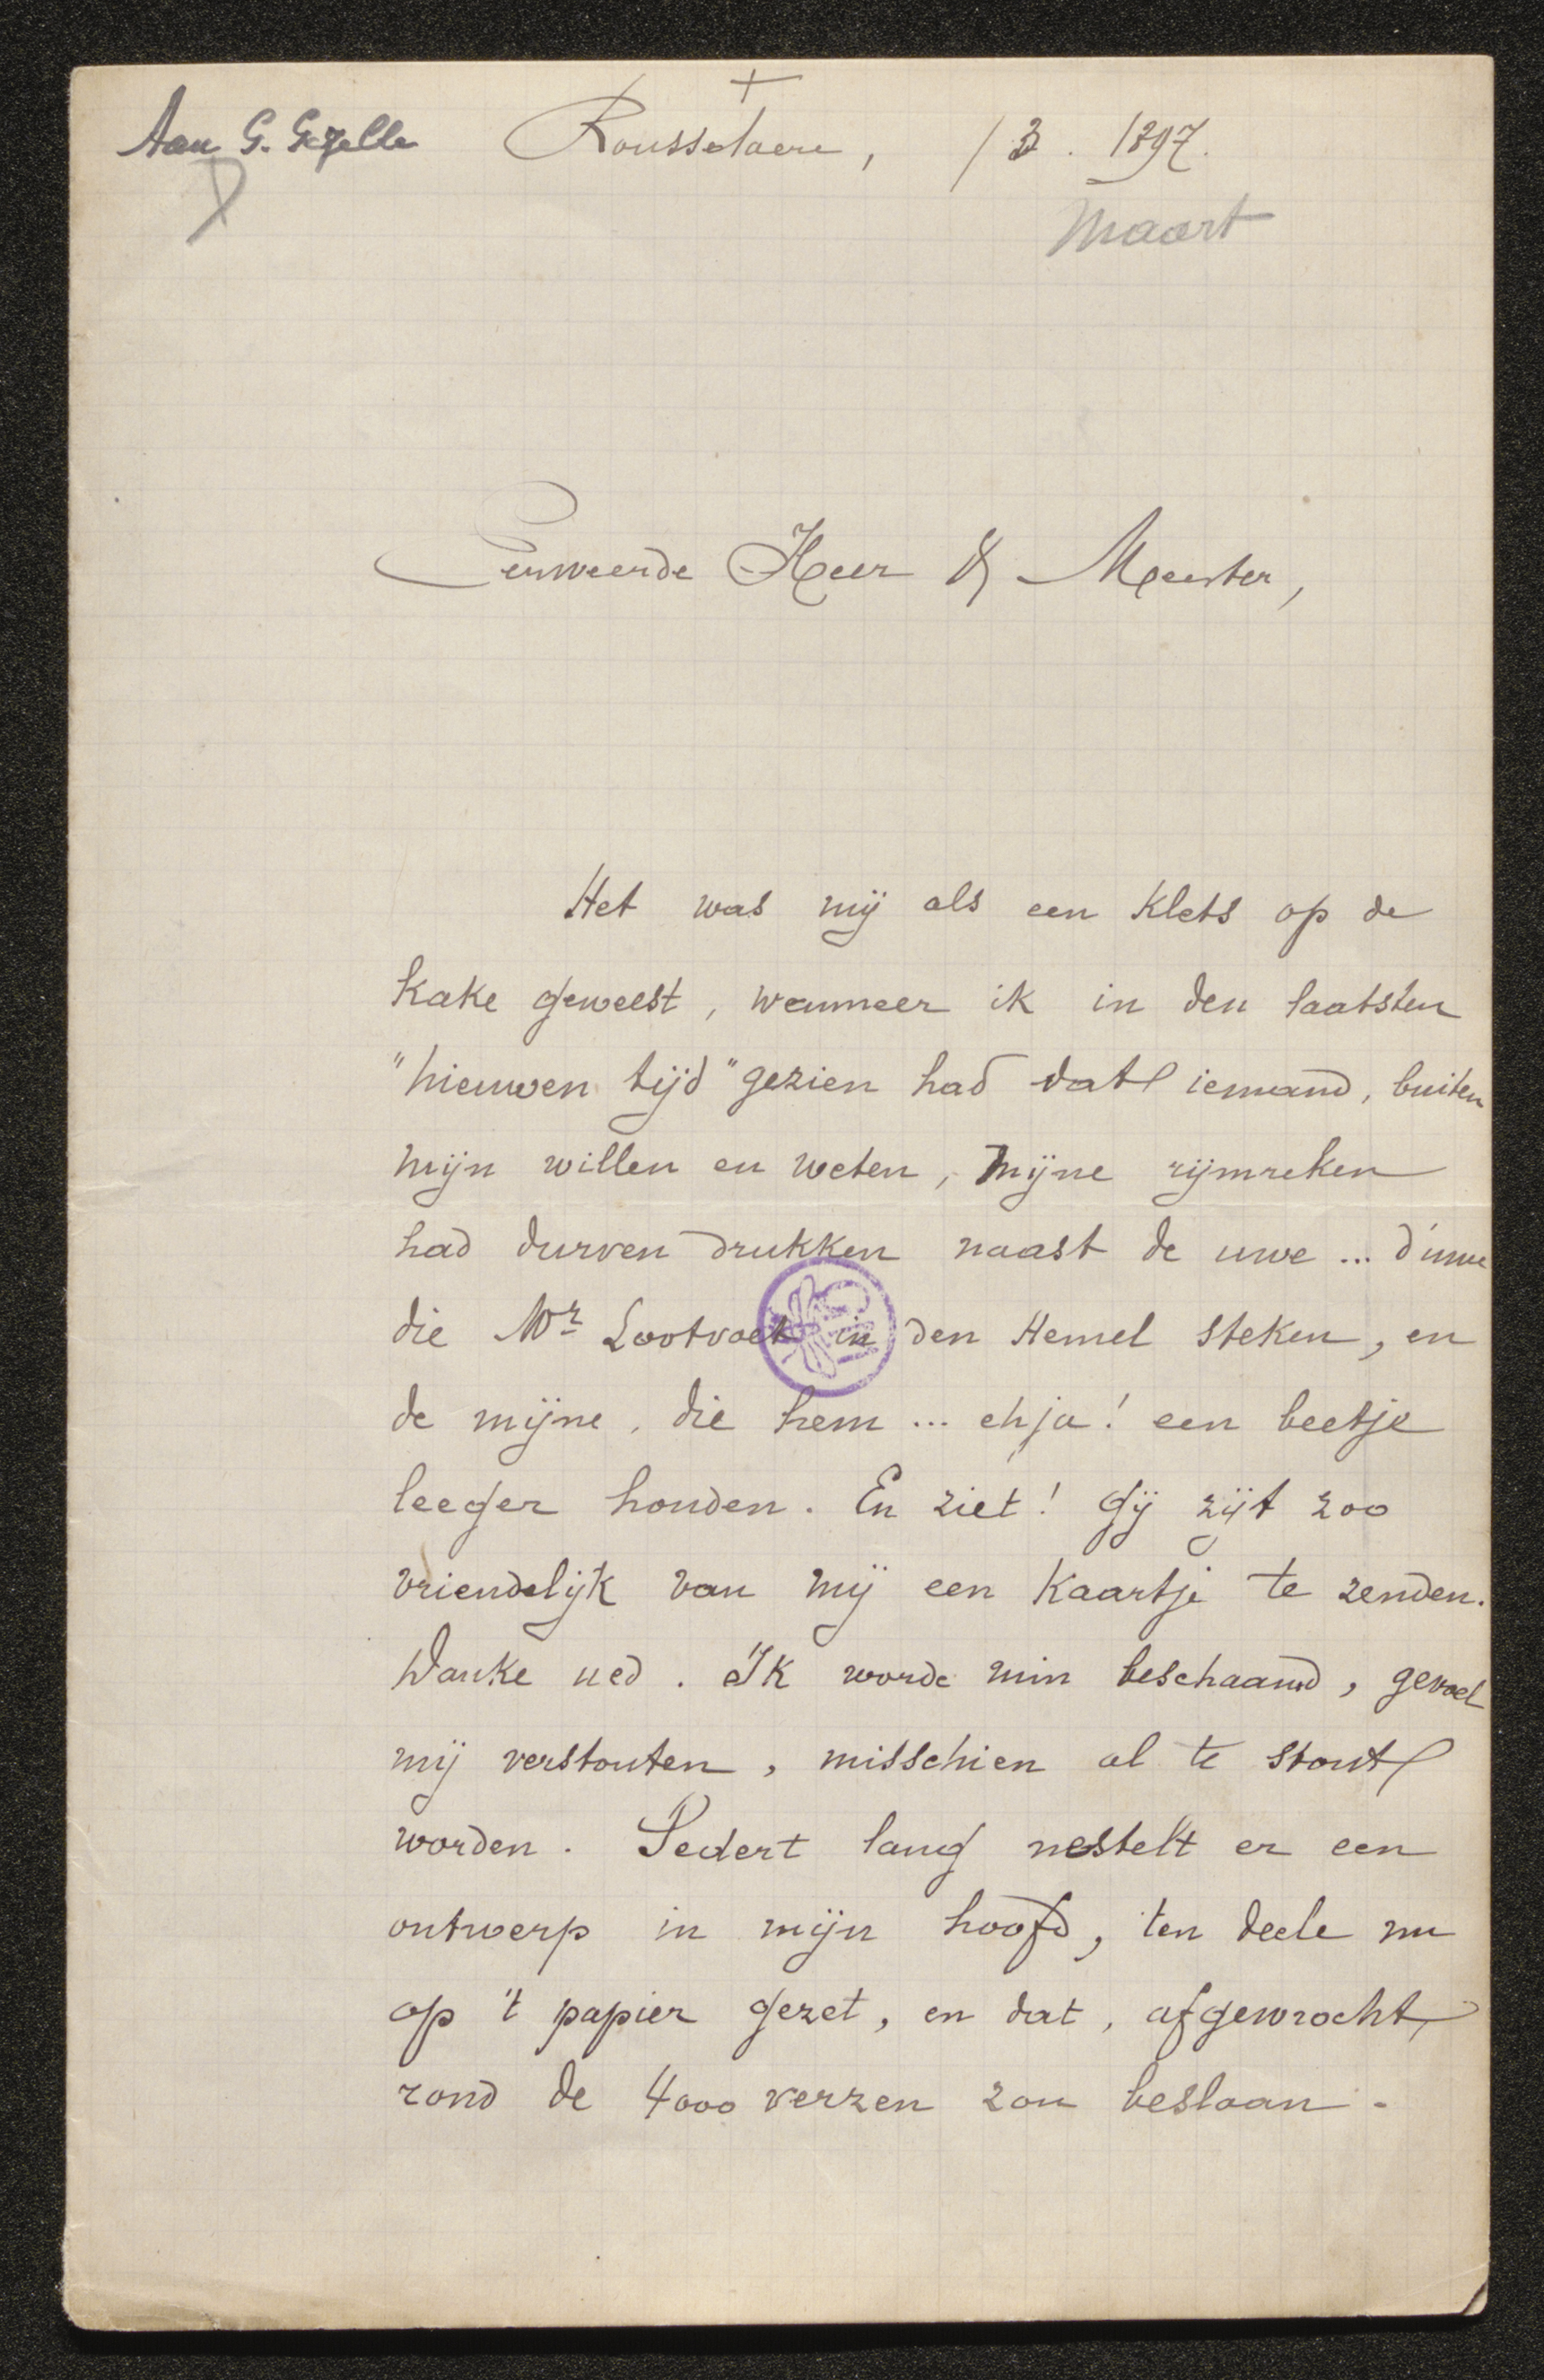 +
Aan G. Gezelle Rousselaere, /3. 1897.
Maart
Eerweerde Heer & Meester,
Het was mij als een klets op de
kake geweest, wanneer ik in den laatsten
"nieuwen tijd" gezien had dat iemand, buiten
mijn willen en weten, mijne rijmreken
had durven drukken naast de uwe ... d'uwe
die Mr Lootvoet in den Hemel steken, en
de mijne, die hem ... eh ja! een beetje
leeger houden. En ziet! Gij zijt zoo
vriendelijk van mij een kaartje te zenden.
Danke ued. Ik worde min beschaamd, gevoel
mij verstouten, misschien al te stout
worden. Sedert lang nestelt er een
ontwerp in mijn hoofd, ten deele nu
op 't papier gezet, en dat, afgewrocht,
rond de 4000 verzen zou beslaan.